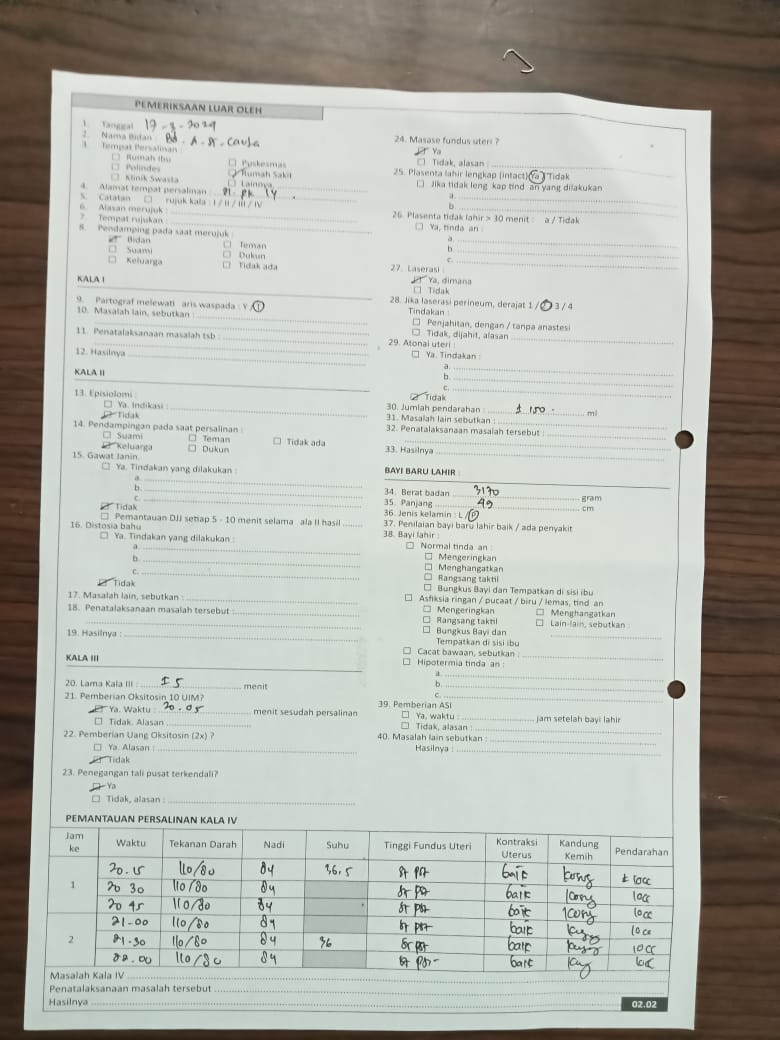 PEMERIKSAAN LUAR OLEH
1. Tanggal
2. Nama Bidan :
3. Tempat Persalinan
□ Rumah Ibu □ Puskesmas
□ Polindes □ Rumah Sakit
□ Klinik Swasta □ Lainnya
4. Alamat tempat persalinan :
5. Catatan □ rujuk kala : I / II / III / IV
6. Alasan merujuk :
7. Tempat rujukan
8. Pendamping pada saat merujuk :
☑ Bidan □ Teman
□ Suami □ Dukun
□ Keluarga □ Tidak ada
KALA I
9. Partograf melewati aris waspada : Y / T
10. Masalah lain, sebutkan :
11. Penatalaksanaan masalah tsb :
12. Hasilnya
KALA II
13. Episiolomi :
□ Ya. Indikasi :
☑ Tidak
14. Pendampingan pada saat persalinan :
□ Suami □ Teman □ Tidak ada
☑ Keluarga □ Dukun
15. Gawat Janin.
□ Ya. Tindakan yang dilakukan :
a.
b.
c.
☑ Tidak
□ Pemantauan DJJ setiap 5 - 10 menit selama ala II hasil
16. Distosia bahu
□ Ya. Tindakan yang dilakukan :
a.
b.
c.
☑ Tidak
17. Masalah lain, sebutkan :
18. Penatalaksanaan masalah tersebut :
19. Hasilnya :
KALA III
20. Lama Kala III : ± 5 menit
21. Pemberian Oksitosin 10 UIM?
☑ Ya. Waktu : 20.05 menit sesudah persalinan
□ Tidak. Alasan
22. Pemberian Uang Oksitosin (2x) ?
□ Ya. Alasan :
☑ Tidak
23. Penegangan tali pusat terkendali?
☑ Ya
□ Tidak, alasan :
24. Masase fundus uteri ?
☑ Ya
□ Tidak, alasan :
25. Plasenta lahir lengkap (intact) Ya / Tidak
□ Jika tidak leng kap tind an yang dilakukan
a.
b.
26. Plasenta tidak lahir > 30 menit : a / Tidak
□ Ya, tinda an :
a.
b.
c.
27. Laserasi :
☑ Ya, dimana
□ Tidak
28. Jika laserasi perineum, derajat 1 / 2 / 3 / 4
Tindakan :
□ Penjahitan, dengan / tanpa anastesi
□ Tidak, dijahit, alasan
29. Atonai uteri :
□ Ya. Tindakan :
a.
b.
c.
☑ Tidak
30. Jumlah pendarahan : ± 150 ml
31. Masalah lain sebutkan :
32. Penatalaksanaan masalah tersebut :
33. Hasilnya
BAYI BARU LAHIR :
34. Berat badan 3170 gram
35. Panjang 49 cm
36. Jenis kelamin : L / P
37. Penilaian bayi baru lahir baik / ada penyakit
38. Bayi lahir :
□ Normal tinda an :
□ Mengeringkan
□ Menghangatkan
□ Rangsang taktil
□ Bungkus Bayi dan Tempatkan di sisi ibu
□ Asfiksia ringan / pucaat / biru / lemas, tind an
□ Mengeringkan □ Menghangatkan
□ Rangsang taktil □ Lain-lain, sebutkan :
□ Bungkus Bayi dan
Tempatkan di sisi ibu
□ Cacat bawaan, sebutkan :
□ Hipotermia tinda an :
a.
b.
c.
39. Pemberian ASI
□ Ya, waktu : jam setelah bayi lahir
□ Tidak, alasan :
40. Masalah lain sebutkan :
Hasilnya :
PEMANTAUAN PERSALINAN KALA IV
Jam ke Waktu Tekanan Darah Nadi Suhu Tinggi Fundus Uteri Kontraksi Uterus Kandung Kemih Pendarahan
1 20.15 110/80 84 36,5 baik kosong ± 10cc
20 30 110/80 84 baik kosong 10cc
20 45 110/80 84 baik kosong 10cc
21-00 110/80 84 baik 10cc
2 21.30 110/80 84 36 baik 10cc
22.00 110/80 84 baik 10cc
Masalah Kala IV
Penatalaksanaan masalah tersebut
Hasilnya
02.02